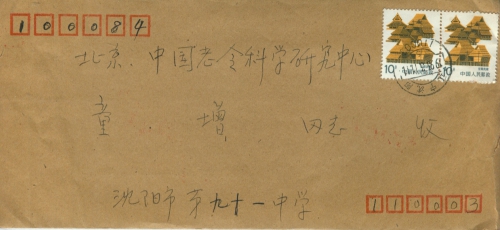 100084
北京．中国老令科学研究中心
童 增 同志 收
沈阳市第九十一中学
110003
10分
中国人民邮政